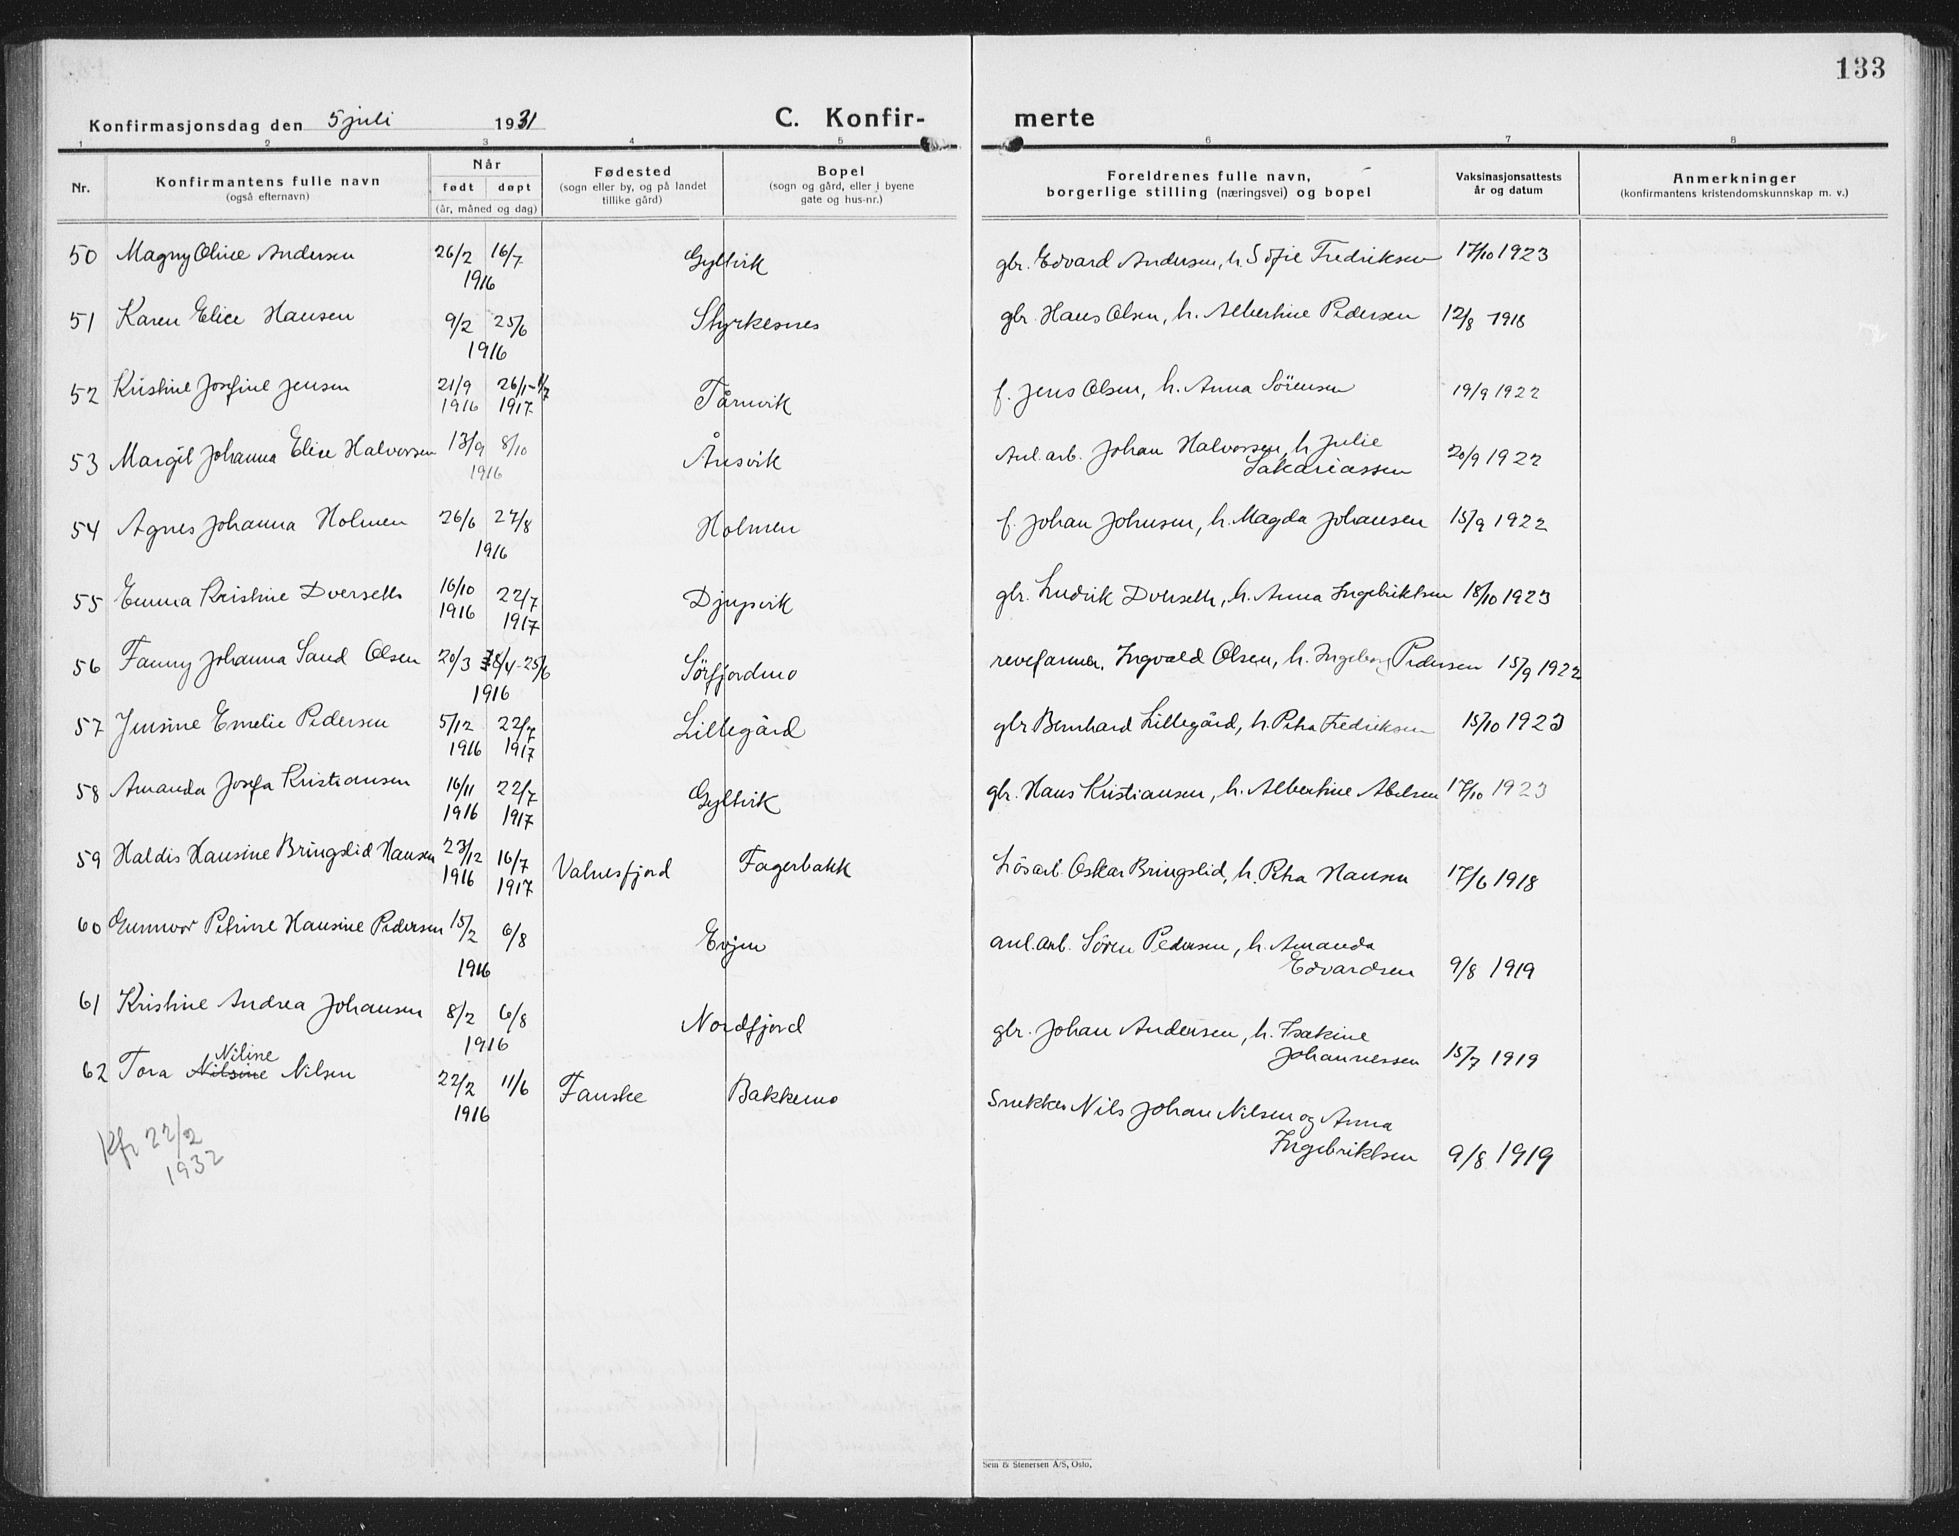 133
Konfirmasjonsdag den 5 juli 1931 C. Konfir- merte
1 2 3 4 5 6 7 8
Nr.
Konfirmantens fulle navn
(også efternavn)
Når
født døpt
(år, måned og dag)
Fødested
(sogn eller by, og på landet
tillike gård)
Bopel
(sogn og gård, eller i byene
gate og hus-nr.)
Foreldrenes fulle navn,
borgerlige stilling (næringsvei) og bopel
Vaksinasjonsattests
år og datum
Anmerkninger
(konfirmantens kristendomskunnskap m. v.)
50 Magny Oline Andersen 26/2 16/7 Gyltvik gbr. Edvard Andersen, h. Sofie Fredriksen 17/10 1923
1916
51 Karen Elice Hansen 9/2 25/6 Styrkesnes gbr. Hans Olsen, h. Albertine Pedersen 12/8 1918
1916
52 Kristine Josefine Jensen 21/9 26/1-1/7 Tårnvik f. Jens Olsen, h. Anna Sörensen 19/9 1922
1916 1917
53 Margit Johanna Elise Halvorsen 13/9 8/10 Ånsvik Anl. arb. Johan Halvorsen, h. Julie
1916 Sakariassen 20/9 1922
54 Agnes Johanna Holmen 26/6 27/8 Holmen f. Johan Johnsen, h. Magda Johansen 15/9 1922
1916
55 Emma Kristine Dverseth 16/10 22/7 Djupvik gbr. Ludvik Dverseth, h. Anna Ingebriktsen 18/10 1923
1916 1917
56 Fanny Johanna Sand Olsen 20/3 /4-25/6 Sörfjordmo revefarmer. Ingvald Olsen, h. Ingeborg Pedersen 15/9 1922
1916
57 Jensine Emelie Pedersen 5/12 22/7 Lillegård gbr Bernhard Lillegård, h. Petra Fredriksen 15/10 1923
1916 1917
58 Amanda Josefa Kristiansen 16/11 22/7 Gyltvik gbr. Hans Kristiansen, h. Albertine Abelsen 17/10 1923
1916 1917
59 Haldis Hansine Bringslid Hansen 23/12 16/7 Valnesfjord Fagerbakk Lösarb. Oskar Bringslid, h. Petra Hansen 17/6 1918
1916 1917
60 Gunnvor Petrine Hansine Pedersen 15/2 6/8 Evjen anl. arb. Sören Pedersen, h. Amanda
1916 Edvardsen 9/8 1919
61 Kristine Andrea Johansen 8/2 6/8 Nordfjord gbr. Johan Andersen, h. Isakine
1916 Johannessen 15/7 1919
Niline
62 Tora Nilsine Nilsen 22/2 11/6 Fauske Bakkemo Snekker Nils Johan Nilsen og Anna
1916 Ingebriktsen 9/8 1919
Kfr 22/2
1932
Sem & Stenersen A/S, Oslo.